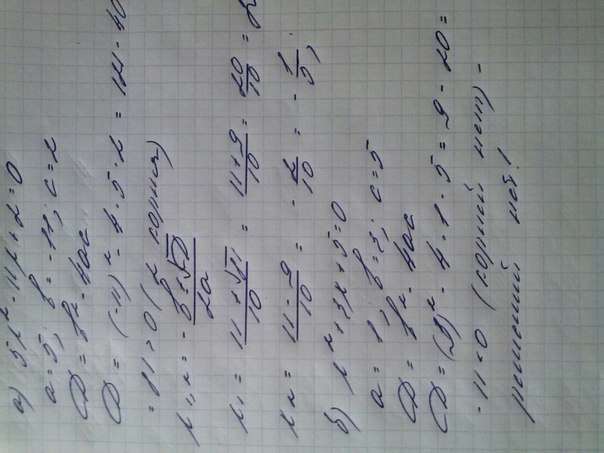 а) 5x² - 11x + 2 = 0
a = 5; b = -11; c = 2
D = b² - 4ac
D = (-11)² - 4 · 5 · 2 = 121 - 40
= 81 > 0 (2 корня)
x₁,₂ = -b ± √D / 2a
x₁ = 11 + √81 / 10 = 11 + 9 / 10 = 20 / 10 =
x₂ = 11 - 9 / 10 = 2 / 10 = 1 / 5;
б) x² + 3x + 5 = 0
a = 1; b = 3; c = 5
D = b² - 4ac
D = (3)² - 4 · 1 · 5 = 9 - 20 =
-11 < 0 (корней нет) -
решений нет!